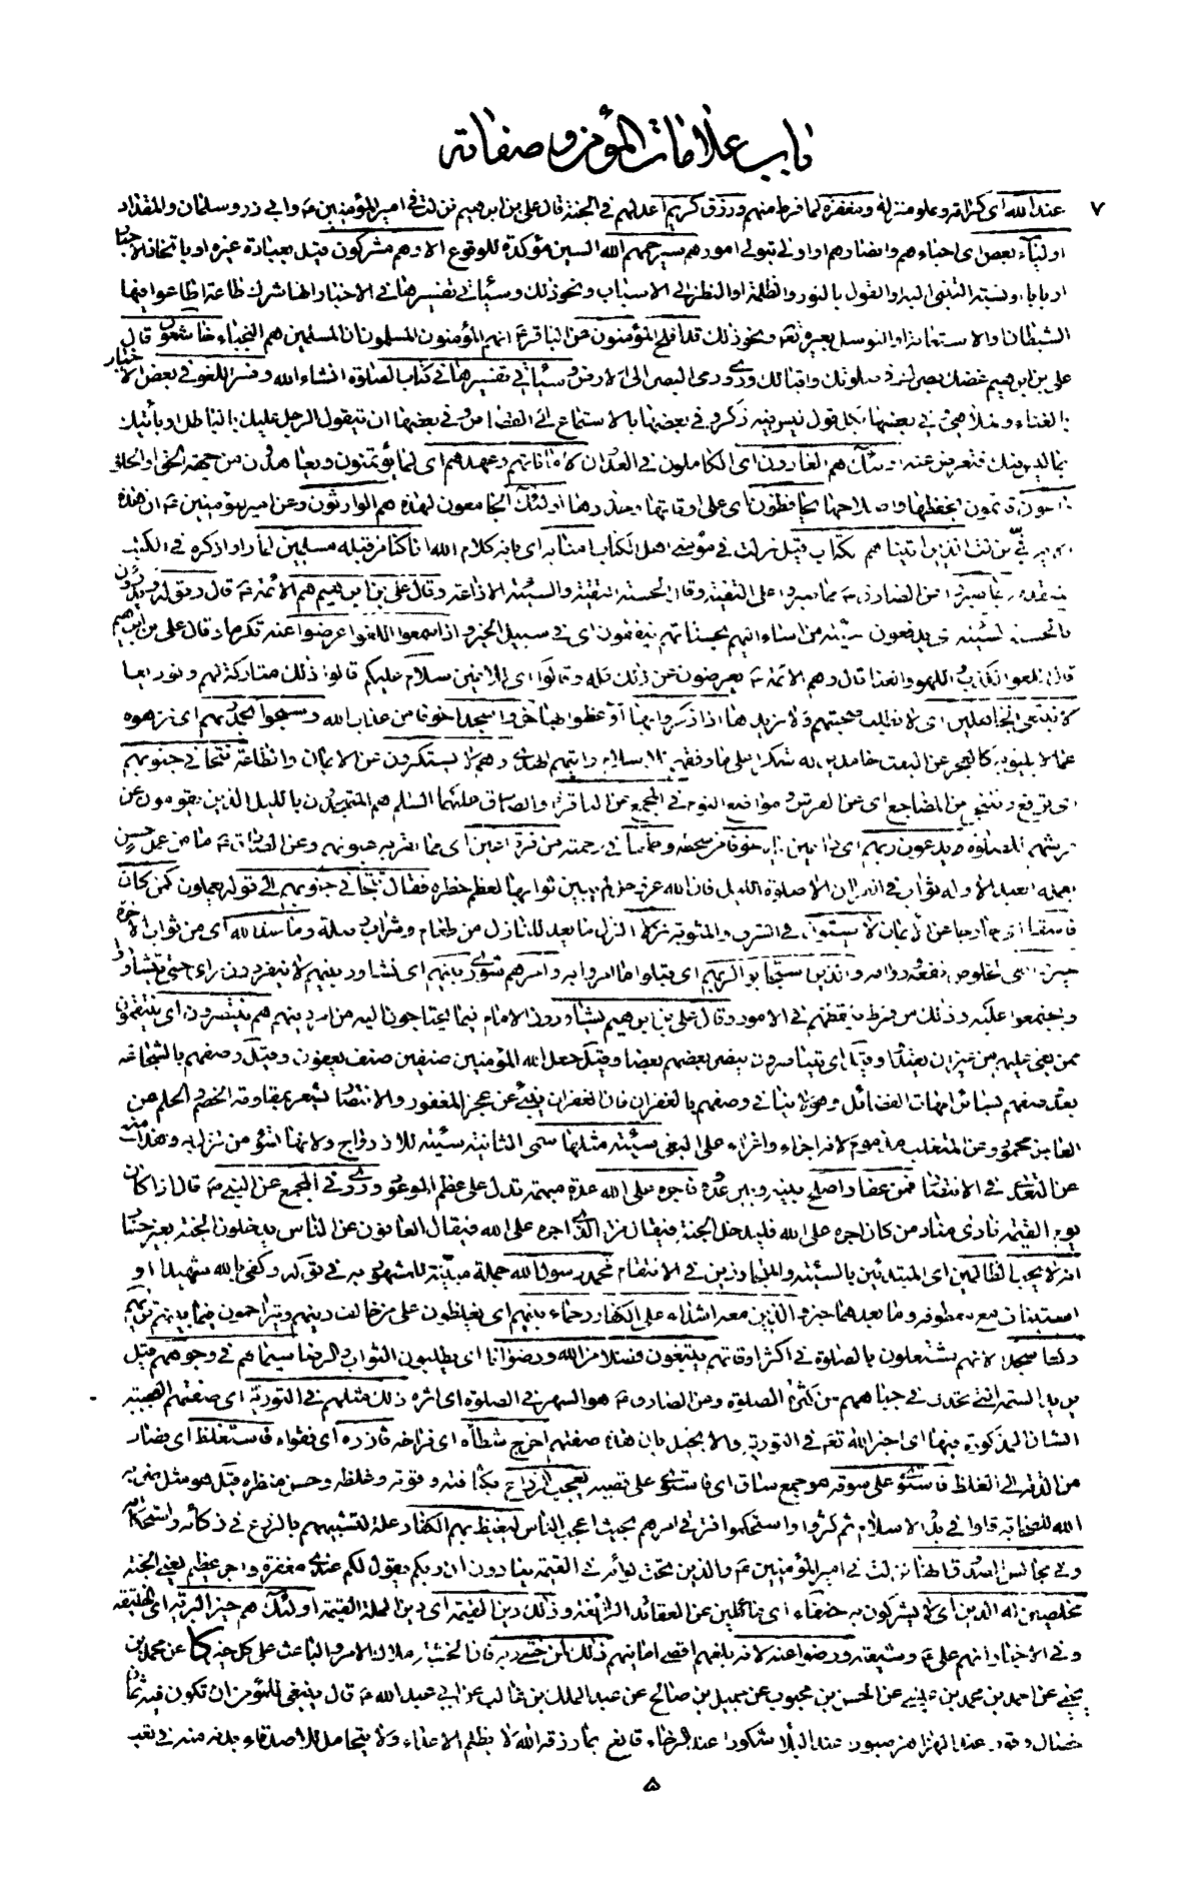 باب علامات المؤمن و صفاته
٧ عند الله اى كرامة وعلو منزلة ومغفرة لما فرط منهم ورزق كريم اعد لهم فى الجنة قال على بن ابرهيم نزلت فى امير المؤمنين ع وابي ذر وسلمان والمقداد
اولياء بعض اى احباءهم وانصارهم او اولى بتولى امورهم سيرحمهم الله السين مؤكدة للوقوع الا وهم مشركون قيل بعبادة غيره او باتخاذ الاحبار
اربابا ونسبة التبنى اليه او القول بالنور والظلمة او النظر الى الاسباب ونحو ذلك وسيأتى تفسيرها فى الاخبار انها شرك طاعة اطاعوا فيها
الشيطان والاستعانة او التوسل بغيره تع ونحو ذلك قد افلح المؤمنون عن الباقر ع انهم المؤمنون المسلمون ان المسلمين هم النجباء خاشعون قال
على بن ابرهيم غضك بصرك فى صلوتك واقبالك وروى رمى البصر الى الارض وسيأتى تفسيرها فى كتاب الصلوة انشاء الله وفسر اللغو فى بعض الاخبار
بالغناء وملاهى فى بعضها بكل قول ليس فيه ذكر وفى بعضها بالاستماع الى القصاص وفى بعضها ان يتقول الرجل عليك بالباطل او يأتيك
بما ليس فيك فتعرض عنه لله هم العادون اى الكاملون فى العدوان لاماناتهم وعهدهم اى لما يؤتمنون ويعاهدون من جهة الحق او الخلق
راعون قائمون بحفظها واصلاحها يحافظون اى على اوقاتها وحدودها اولئك الجامعون لهذه هم الوارثون وعن امير المؤمنين ع ان هذه
الذين اتيناهم الكتاب قيل نزلت فى مؤمنى اهل الكتاب امنا به اى بانه كلام الله انا كنا من قبله مسلمين لما راوا ذكره فى الكتب
بما صبروا عن الصادق ع بما صبروا على التقية وقال الحسنة التقية والسيئة الاذاعة وقال على بن ابرهيم هم الائمة ع قال وقوله ويدرؤن
بالحسنة السيئة اى يدفعون سيئة من اساء اليهم بحسناتهم ينفقون اى فى سبيل الخير واذا سمعوا اللغو اعرضوا عنه تكرما وقال على بن ابرهيم
قال اللغو الكذب واللهو والغنا قال وهم الائمة ع يعرضون عن ذلك كله وقالوا اى للاغين سلام عليكم قالوا ذلك متاركة لهم وتوديعا
لا نبتغى الجاهلين اى لا نطلب صحبتهم ولا نريدها اذا ذكروا بها اى وعظوا بها خروا سجدا خوفا من عذاب الله وسبحوا بحمد ربهم اى نزهوه
عما لا يليق به كالعجز عن البعث حامدين له شكرا على ما وفقهم للاسلام واتيهم الهدى وهم لا يستكبرون عن الايمان والطاعة تتجافى جنوبهم
اى ترتفع وتتنحى عن المضاجع اى عن الفرش ومواضع النوم فى المجمع عن الباقر والصادق عليهما السلم هم المتهجدون بالليل الذين يقومون عن
فرشهم للصلوة يدعون ربهم اى داعين اياه خوفا من سخطه وطمعا فى رحمته من قرة اعين اى مما تقر به عيونهم وعن الصادق ع ما من عمل حسن
يعمله العبد الا وله ثواب فى القران الا صلوة الليل فان الله عز وجل لم يبين ثوابها لعظم خطره فقال تتجافى جنوبهم الى قوله يعملون كمن كان
فاسقا اى خارجا عن الايمان لا يستوون فى الشرف والمثوبة نزلا النزل ما يعد للنازل من طعام وشراب وصلة وما عند الله اى من ثواب الاخرة
خير وابقى لخلوص نفعه ودوامه والذين استجابوا لربهم اى قبلوا ما امروا به وامرهم شورى بينهم اى تشاور بينهم لا ينفردون براى حتى يتشاوروا
ويجتمعوا عليه وذلك من فرط تيقظهم فى الامور وقال على بن ابرهيم يشاورون الامام فيما يحتاجون اليه من امر دينهم هم ينتصرون اى ينتقمون
ممن بغى عليهم من غير ان يعتدوا وقيل اى يتناصرون ينصر بعضهم بعضا وقيل جعل الله المؤمنين صنفين صنف يعفون وقيل وصفهم بالشجاعة
بعد وصفهم بسائر امهات الفضائل وهو لا ينافى وصفهم بالغفران فان الغفران ينبئ عن عجز المغفور والانتصار يشعر بمقاومة الخصم والحلم عن
العاجز محمود وعن المتغلب مذموم لانه اجراء واغراء على البغى سيئة مثلها سمى الثانية سيئة للازدواج ولانها تسوء من تنزل به وهذا منع
عن التعدى فى الانتصار فمن عفا واصلح بينه وبين عدوه فاجره على الله عدة مبهمة تدل على عظم الموعود وروى فى المجمع عن النبى ص قال اذا كان
يوم القيمة نادى مناد من كان اجره على الله فليدخل الجنة فيقال من ذا الذى اجره على الله فيقال العافون عن الناس يدخلون الجنة بغير حساب
انه لا يحب الظالمين اى المبتدئين بالسيئة والمتجاوزين فى الانتقام محمد رسول الله جملة مبينة للمشهود به فى قوله وكفى بالله شهيدا او
استيناف مع معطوفه وما بعدهما خبر والذين معه اشداء على الكفار رحماء بينهم اى يغلظون على من خالف دينهم ويتراحمون فيما بينهم تريهم
ركعا سجدا لانهم يشتغلون بالصلوة فى اكثر اوقاتهم يبتغون فضلا من الله ورضوانا اى يطلبون الثواب والرضا سيماهم فى وجوههم قيل
يريد السمة التى تحدث فى جباههم من كثرة الصلوة وعن الصادق ع هو السهر فى الصلوة اى اثره ذلك مثلهم فى التورية اى صفتهم العجيبة
الشان المذكورة فيها اى اخبر الله تع فى التورية والانجيل بان هذه صفتهم اخرج شطأه اى فراخه فازره اى فقواه فاستغلظ اى فصار
من الدقة الى الغلظ فاستوى على سوقه هو جمع ساق اى فاستوى على قصبه يعجب الزراع بكثافته وقوته وغلظه وحسن منظره قيل هو مثل ضربه
الله للصحابة قلوا فى بدء الاسلام ثم كثروا واستحكموا فترقى امرهم بحيث اعجب الناس ليغيظ بهم الكفار علة لتشبيههم بالزرع فى ذكائه واستحكامه
وفى مجالس الصدوق انها نزلت فى امير المؤمنين ع والذين تحت لوائه فى القيمة ينادون ان ربكم يقول لكم عندى مغفرة واجر عظيم يعنى الجنة
مخلصين له الدين اى لا يشركون به حنفاء اى مائلين عن العقائد الزائغة وذلك دين القيمة اى دين الملة القيمة اولئك هم خير البرية اى الخليقة
وفى الاخبار انهم على ع وشيعته ورضوا عنه لانه بلغهم اقصى امانيهم ذلك لمن خشى ربه فان الخشية ملاك الامر والباعث على كل خير كا عن محمد بن
يحيى عن احمد بن محمد بن عيسى عن الحسن بن محبوب عن جميل بن صالح عن عبد الملك بن غالب عن ابى عبد الله ع قال ينبغى للمؤمن ان تكون فيه ثمان
خصال وقور عند الهزاهز صبور عند البلاء شكور عند الرخاء قانع بما رزقه الله لا يظلم الاعداء ولا يتحامل للاصدقاء بدنه منه فى تعب
۵